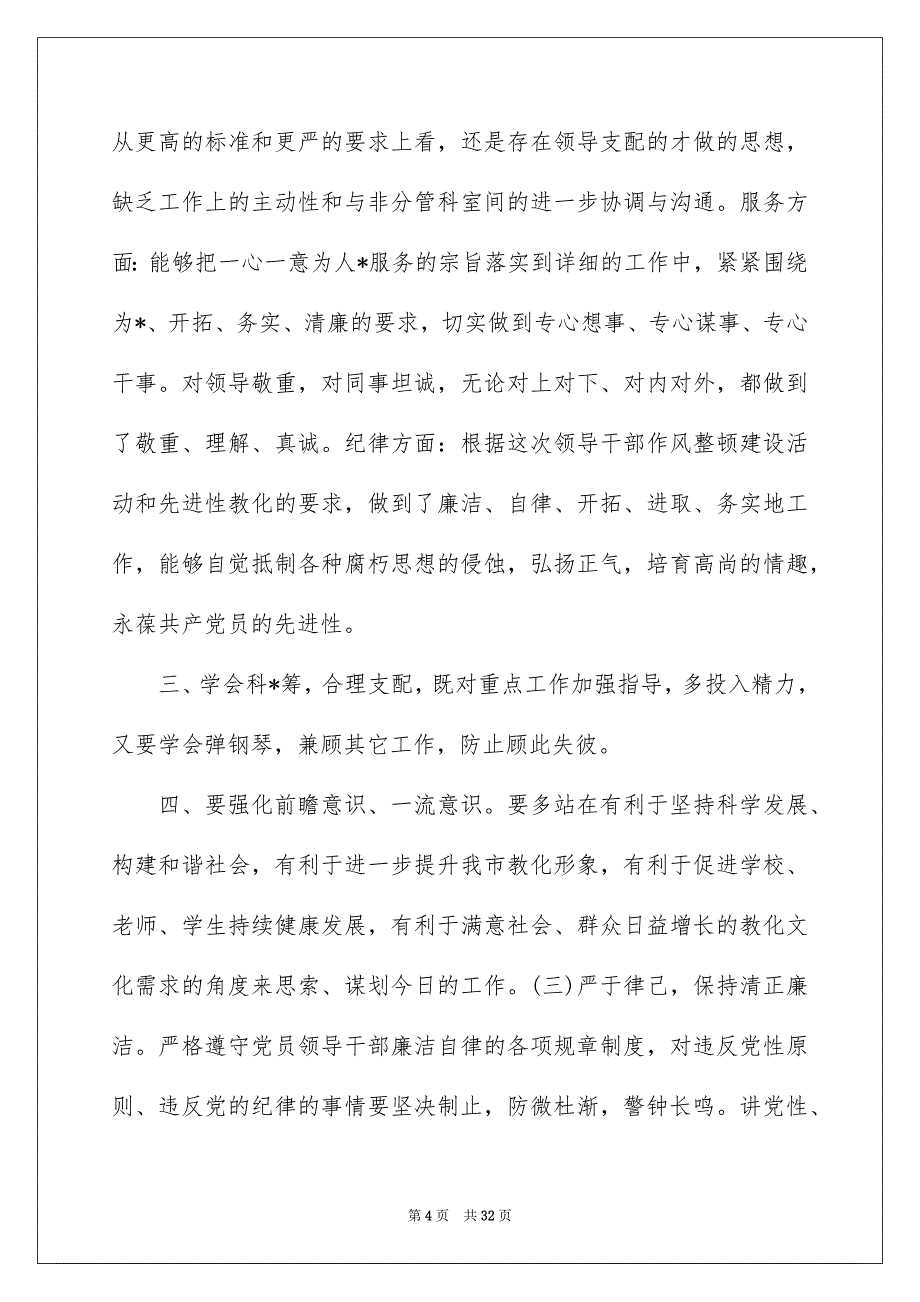 从更高的标准和更严的要求上看，还是存在领导支配的才做的思想，
缺乏工作上的主动性和与非分管科室间的进一步协调与沟通。服务方
面：能够把一心一意为人*服务的宗旨落实到详细的工作中，紧紧围绕
为*、开拓、务实、清廉的要求，切实做到专心想事、专心谋事、专心
干事。对领导敬重，对同事坦诚，无论对上对下、对内对外，都做到
了敬重、理解、真诚。纪律方面：根据这次领导干部作风整顿建设活
动和先进性教化的要求，做到了廉洁、自律、开拓、进取、务实地工
作，能够自觉抵制各种腐朽思想的侵蚀，弘扬正气，培育高尚的情趣，
永葆共产党员的先进性。
三、学会科*筹，合理支配，既对重点工作加强指导，多投入精力，
又要学会弹钢琴，兼顾其它工作，防止顾此失彼。
四、要强化前瞻意识、一流意识。要多站在有利于坚持科学发展、
构建和谐社会，有利于进一步提升我市教化形象，有利于促进学校、
老师、学生持续健康发展，有利于满意社会、群众日益增长的教化文
化需求的角度来思索、谋划今日的工作。(三)严于律己，保持清正廉
洁。严格遵守党员领导干部廉洁自律的各项规章制度，对违反党性原
则、违反党的纪律的事情要坚决制止，防微杜渐，警钟长鸣。讲党性、
第 4 页 共 32 页